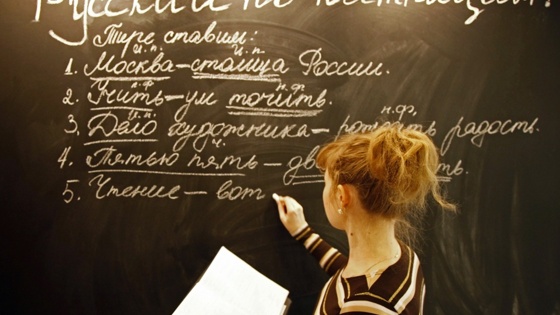 Русский по настоящему!
Тире ставим:
и.п. и.п.
1. Москва – столица России.
н.ф. н.ф.
2. Учить – ум точить.
и.п. н.ф.
3. Дело художника – рождать радость.
ч.
4. Пятью пять –
5. Чтение – вот